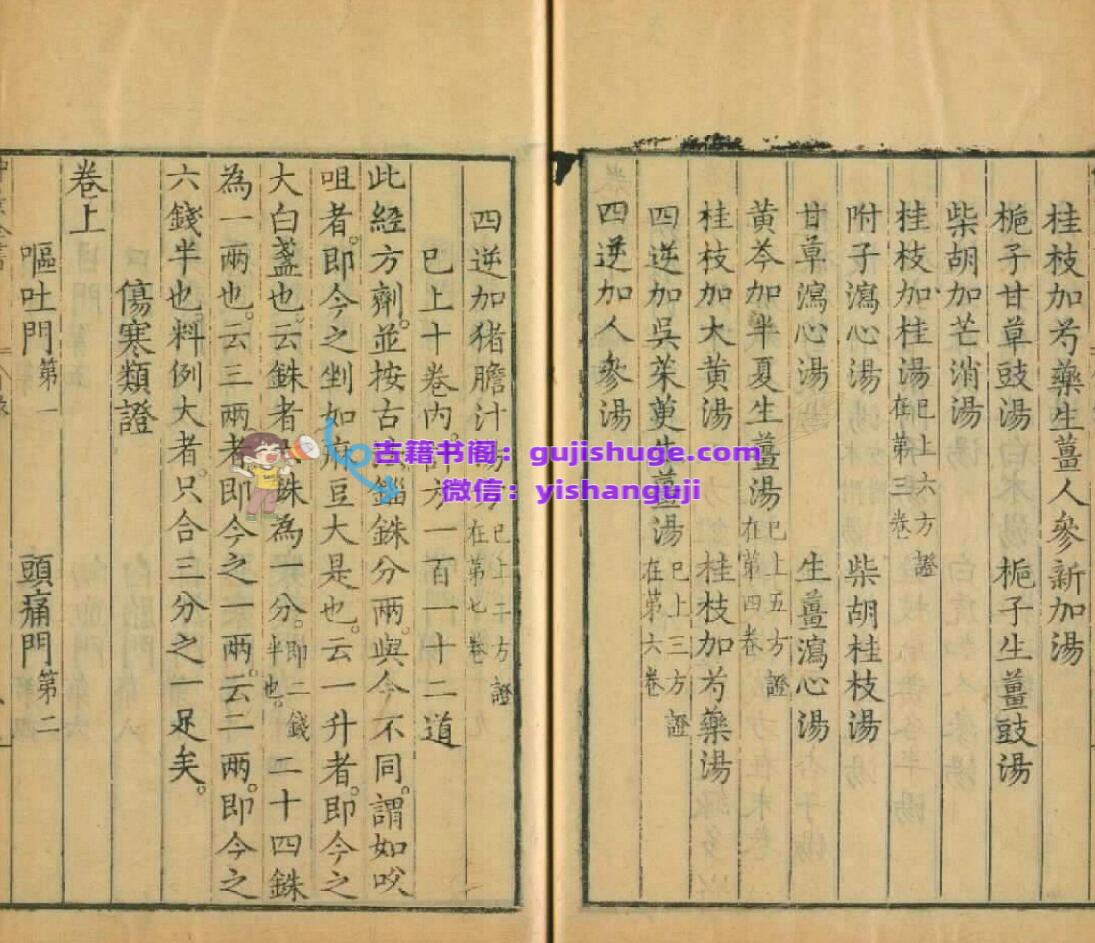 桂枝加芍藥生薑人參新加湯
梔子甘草豉湯 梔子生薑豉湯
柴胡加芒消湯
桂枝加桂湯 已上六方證在第三卷
附子瀉心湯 柴胡桂枝湯
甘草瀉心湯 生薑瀉心湯
黃芩加半夏生薑湯 已上五方證在第四卷
桂枝加大黃湯 桂枝加芍藥湯
四逆加吳茱萸生薑湯 已上三方證在第六卷
四逆加人參湯
四逆加猪膽汁湯 已上二方證在第七卷
已上十卷內 方一百一十二道
此經方劑。並按古 錙銖分兩。與今不同。謂如㕮
咀者。即今之剉如麻豆大是也。云一升者。即今之
大白盞也。云銖者 銖為一分。即二錢半也。二十四銖
為一兩也。云三兩者。即今之一兩。云二兩。即今之
六錢半也。料例大者。只合三分之一足矣。
傷寒類證
卷上
嘔吐門第一 頭痛門第二
古籍书阁：gujishuge.com
微信：yishanguji